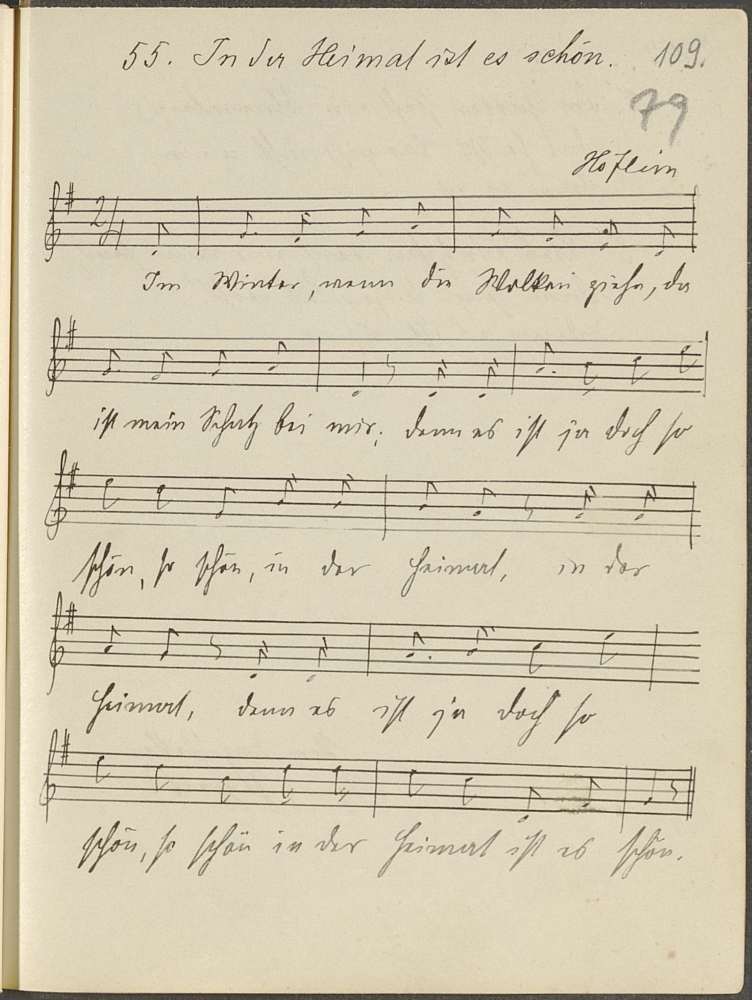 55. In der Heimat ist es schön. 109.
79
Höflein
2/4
Im Winter, wenn die Wolken ziehn, da
ist mein Schatz bei mir; denn es ist ja doch so
schön, so schön, in der Heimat, in der
Heimat, denn es ist ja doch so
schön, so schön in der Heimat ist es schön.